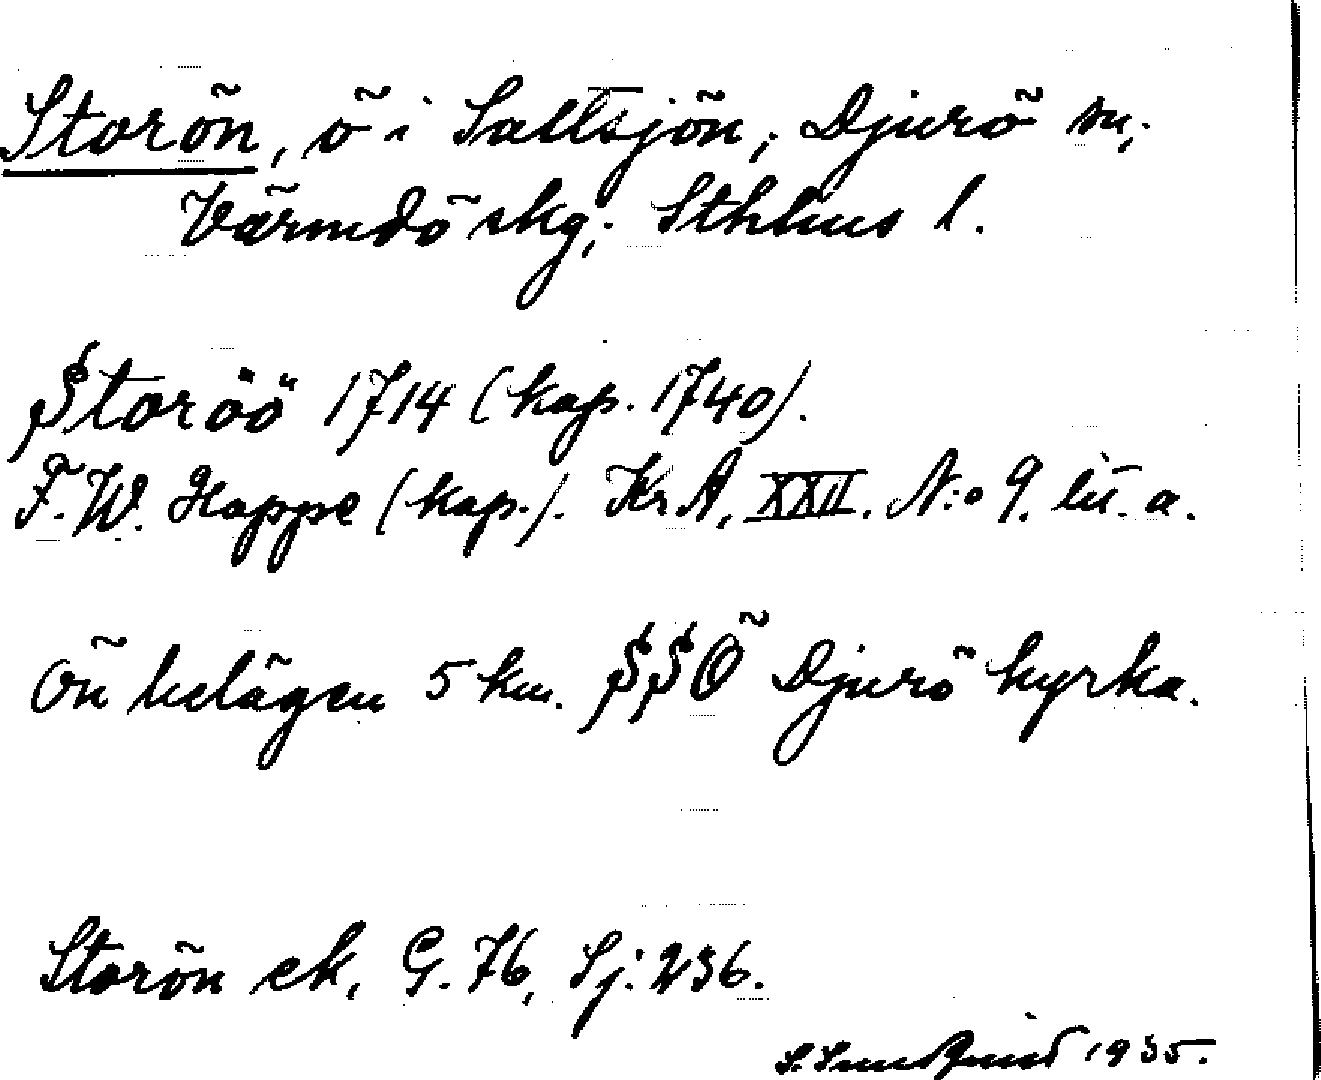 Storön, ö i Saltsjön, Djurö sn,
Värmdö skg, Sthlms l.
Storöö 1714 (kop. 1740).
F. W. Hoppe (kop.). Kr A, XXII. N:o 9. lit. a.
Ön belägen 5 km. SSÖ Djurö kyrka.
Storön ek, G. 76, Sj: 236.
S. Sundquist 1935.